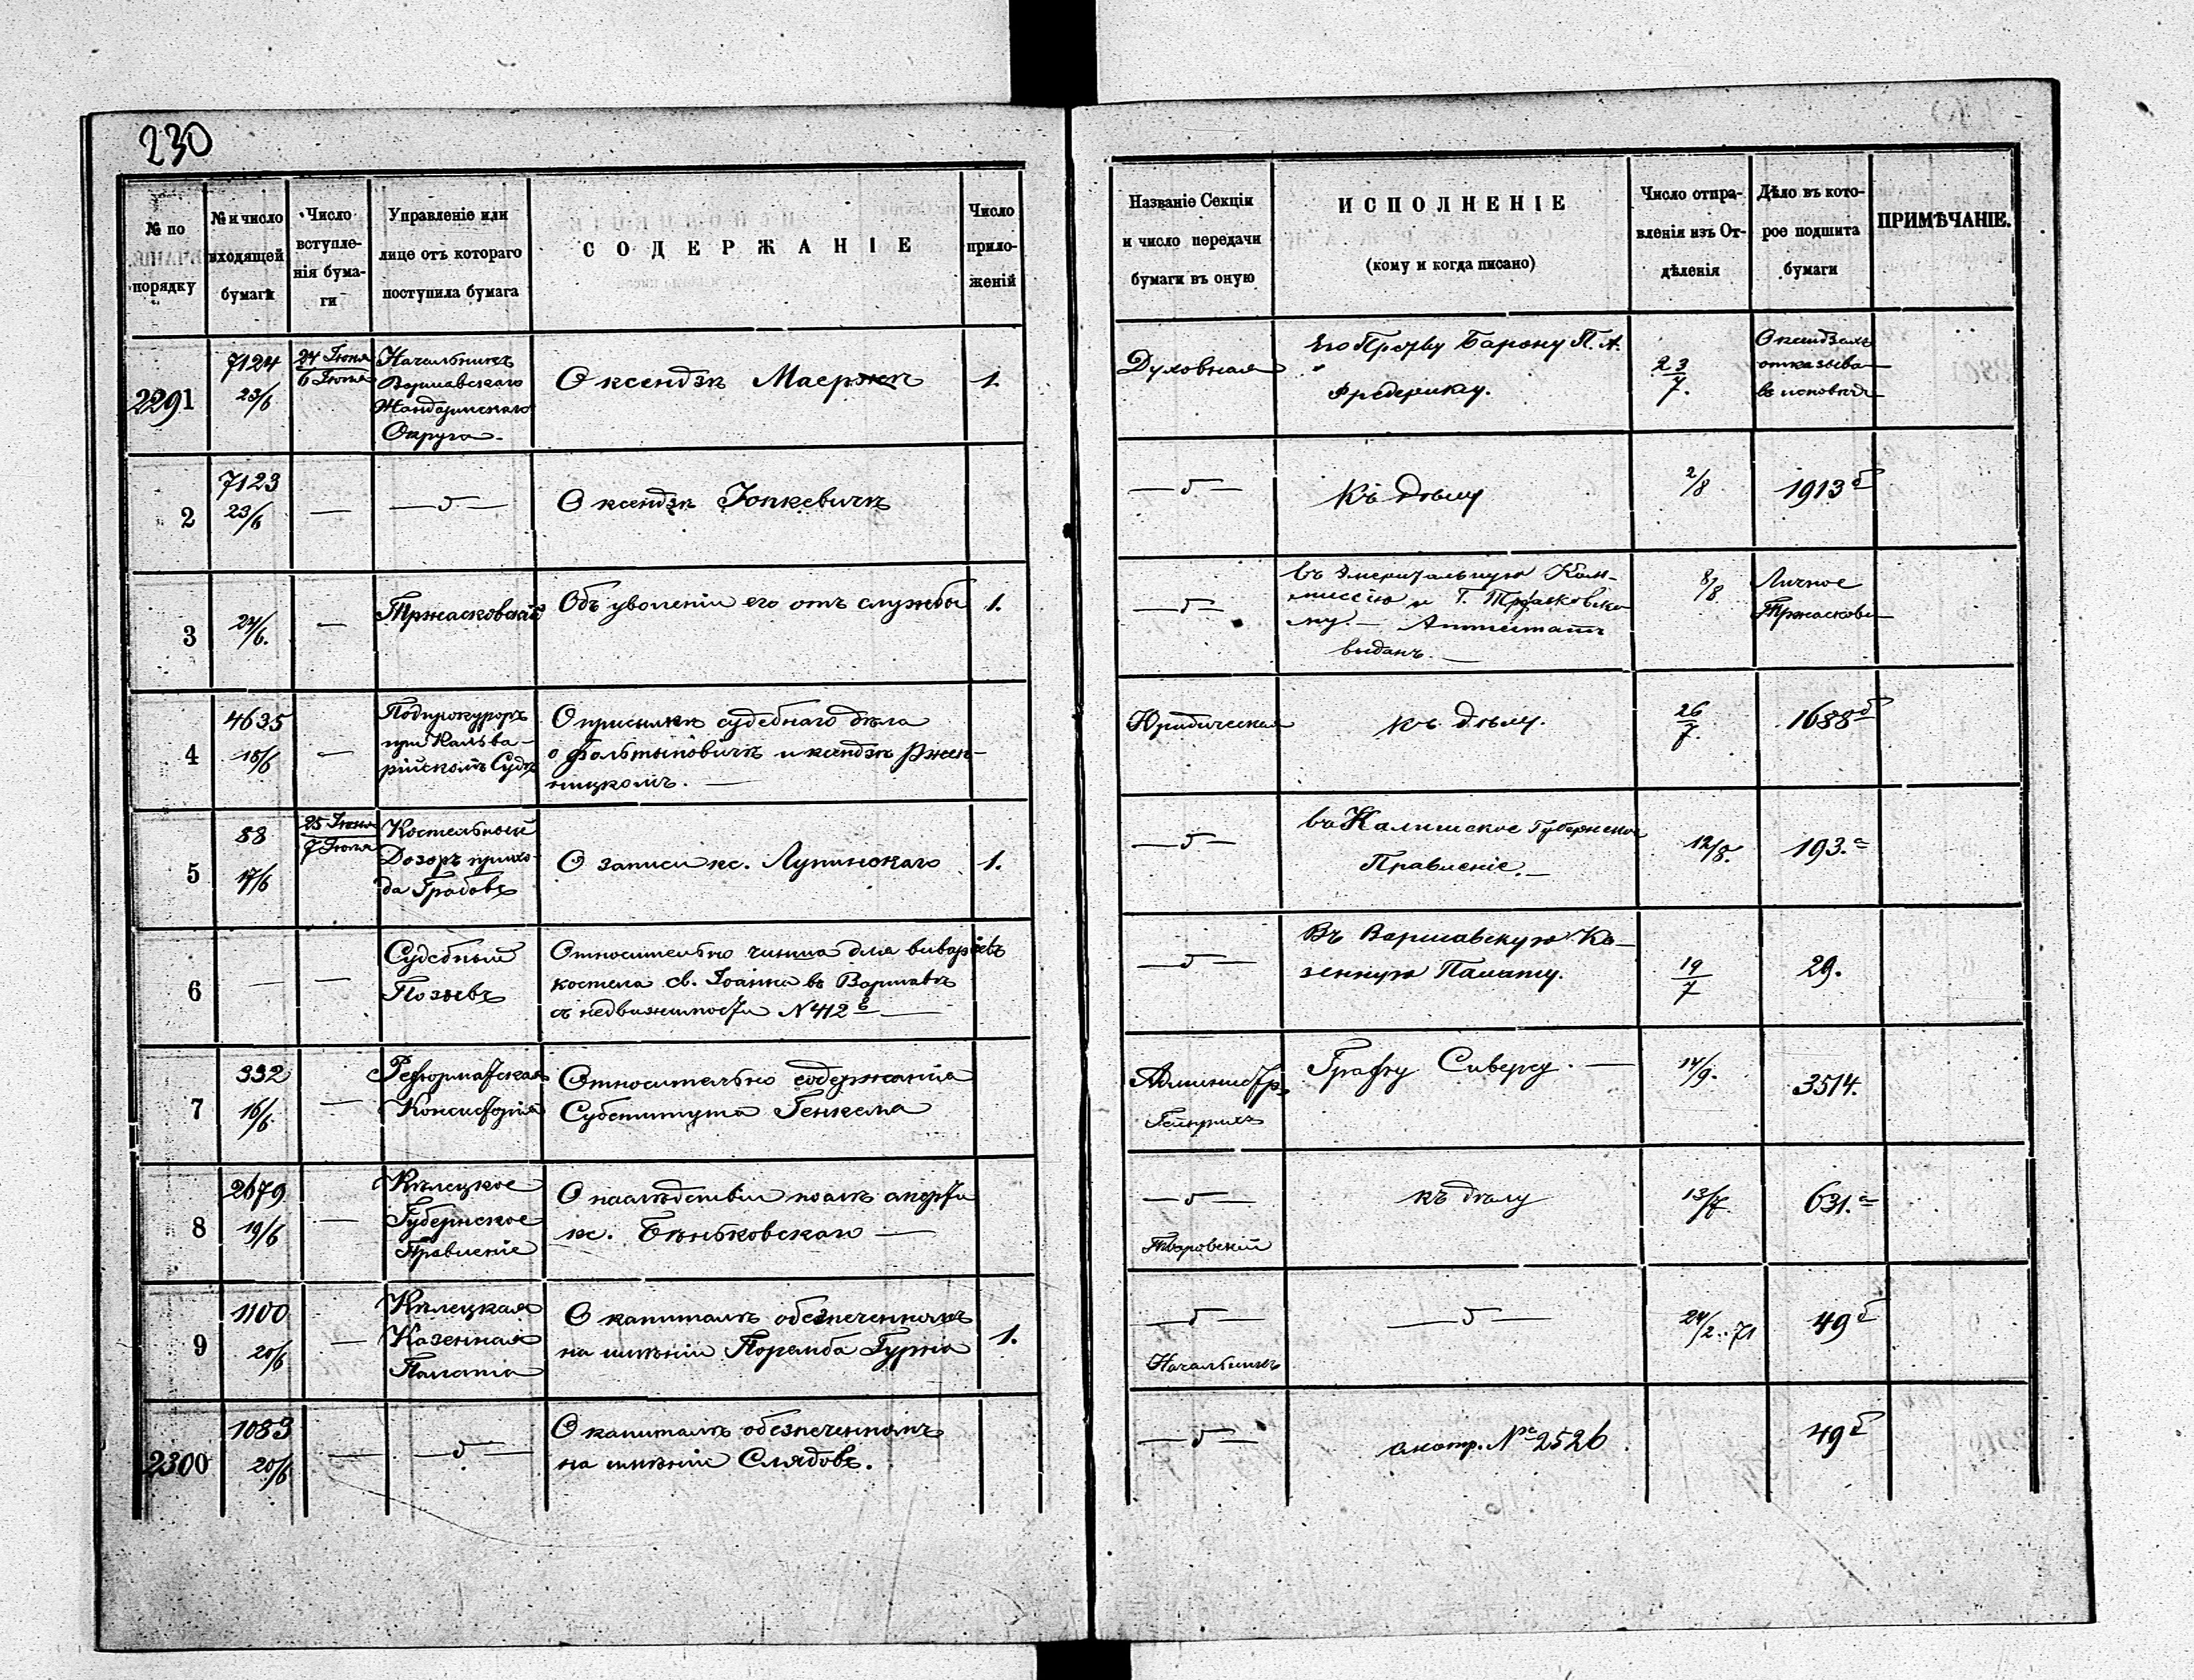 230
№ по порядку
№ и число входящей бумаги
Число вступленія бумаги
Управленіе или лице отъ котораго поступила бумага
СОДЕРЖАНІЕ
Число приложеній
Названіе Секціи и число передачи бумаги въ оную
ИСПОЛНЕНІЕ
(кому и когда писано)
Число отправленія изъ Отдѣленія
Дѣло въ которое подшита бумаги
ПРИМѢЧАНІЕ.
2291
7124
23/6
24 Іюня
6 Іюля
Начальникъ
Варшавскаго
Жандармскаго
Округа
О ксендзѣ
1.
Духовная
Барону П. А.
Фредерику.
23/7.
О ксендзахъ
отказыва
въ исповѣди
2
7123
23/6
—
— 5 —
О ксендзѣ Іопкевичѣ
— 5 —
Къ дѣлу
2/8
1913 б
3
24/6.
—
Тржасковскій
Объ уволеніи его отъ службы
1.
— 5 —
Въ Эмеритальную Ком-
миссію и Г. Тржасковско
му. — Аттестатъ
выданъ. —
8/8
Личное
Тржасковс
4
4635
18/6
—
Подпрокуроръ
при Кальва-
рійскомъ Судѣ
О присылкѣ судебнаго дѣла
о Фольтыновичѣ и ксендзѣ Ржен-
ницкомъ. —
Юридическая
къ дѣлу.
26/7.
1688 б
5
88
17/6
25 Іюня
7 Іюля
Костельный
Дозоръ прихо-
да Грабовъ
О записи кс. Лупинскаго
1.
— 5 —
въ Калишское Губернское
Правленіе. —
12/8.
193. а
6
—
—
Судебный
Позывъ
Относительно чинша для викаріевъ
костела св. Іоанна въ Варшавѣ
съ недвижимости N 412 в —
— 5 —
Въ Варшавскую Ка-
зенную Палату.
19/7
29.
7
332
16/6.
—
Реформатская
Консисторія
Относительно содержанія
Субститута Генкеля
Администр.
Гейнрихъ
Графу Сиверсу. —
14/9.
3514.
8
2679
19/6
—
Кѣлецкое
Губернское
Правленіе
О наслѣдствіи послѣ смерти
кс. Бѣньковскаго —
— 5 —
къ дѣлу
13/7.
631. а
9
1100
20/6
—
Кѣлецкая
Казенная
Палата
О капиталѣ обезпеченномъ
на имѣніи Поремба Гурна
1.
— 5 —
Начальникъ
— 5 —
24/2 .. 71
49 б
2300
1083
20/6
—
— 5 —
О капиталѣ обезпеченномъ
на имѣніи Слядовъ.
— 5 —
смотр. № 2526
49 б